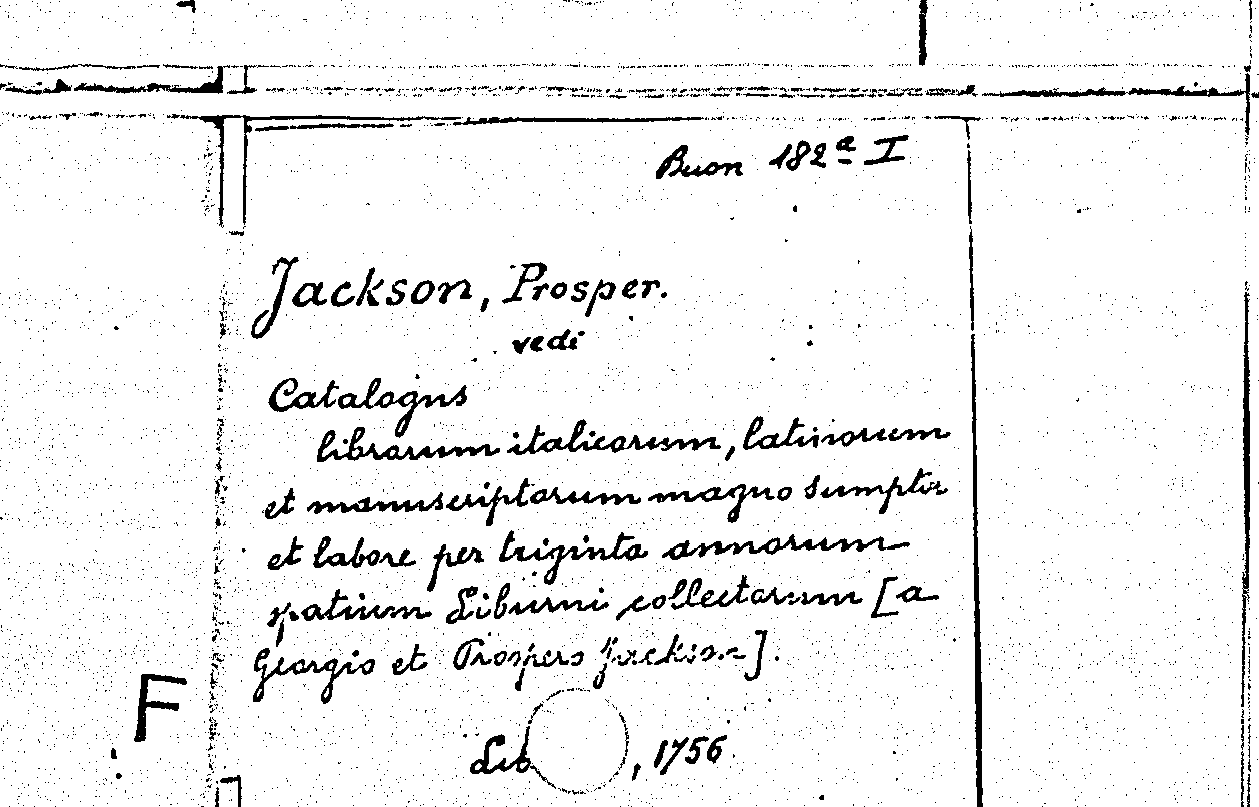 Buon 182ª I
Jackson, Prosper.
vedi
Catalogus
librorum italicorum, latinorum
et manuscriptorum magno sumptu
et labore per triginta annorum
spatium Liburni collectorum [a
Georgio et Prospero Jackson].
Lib , 1756
F